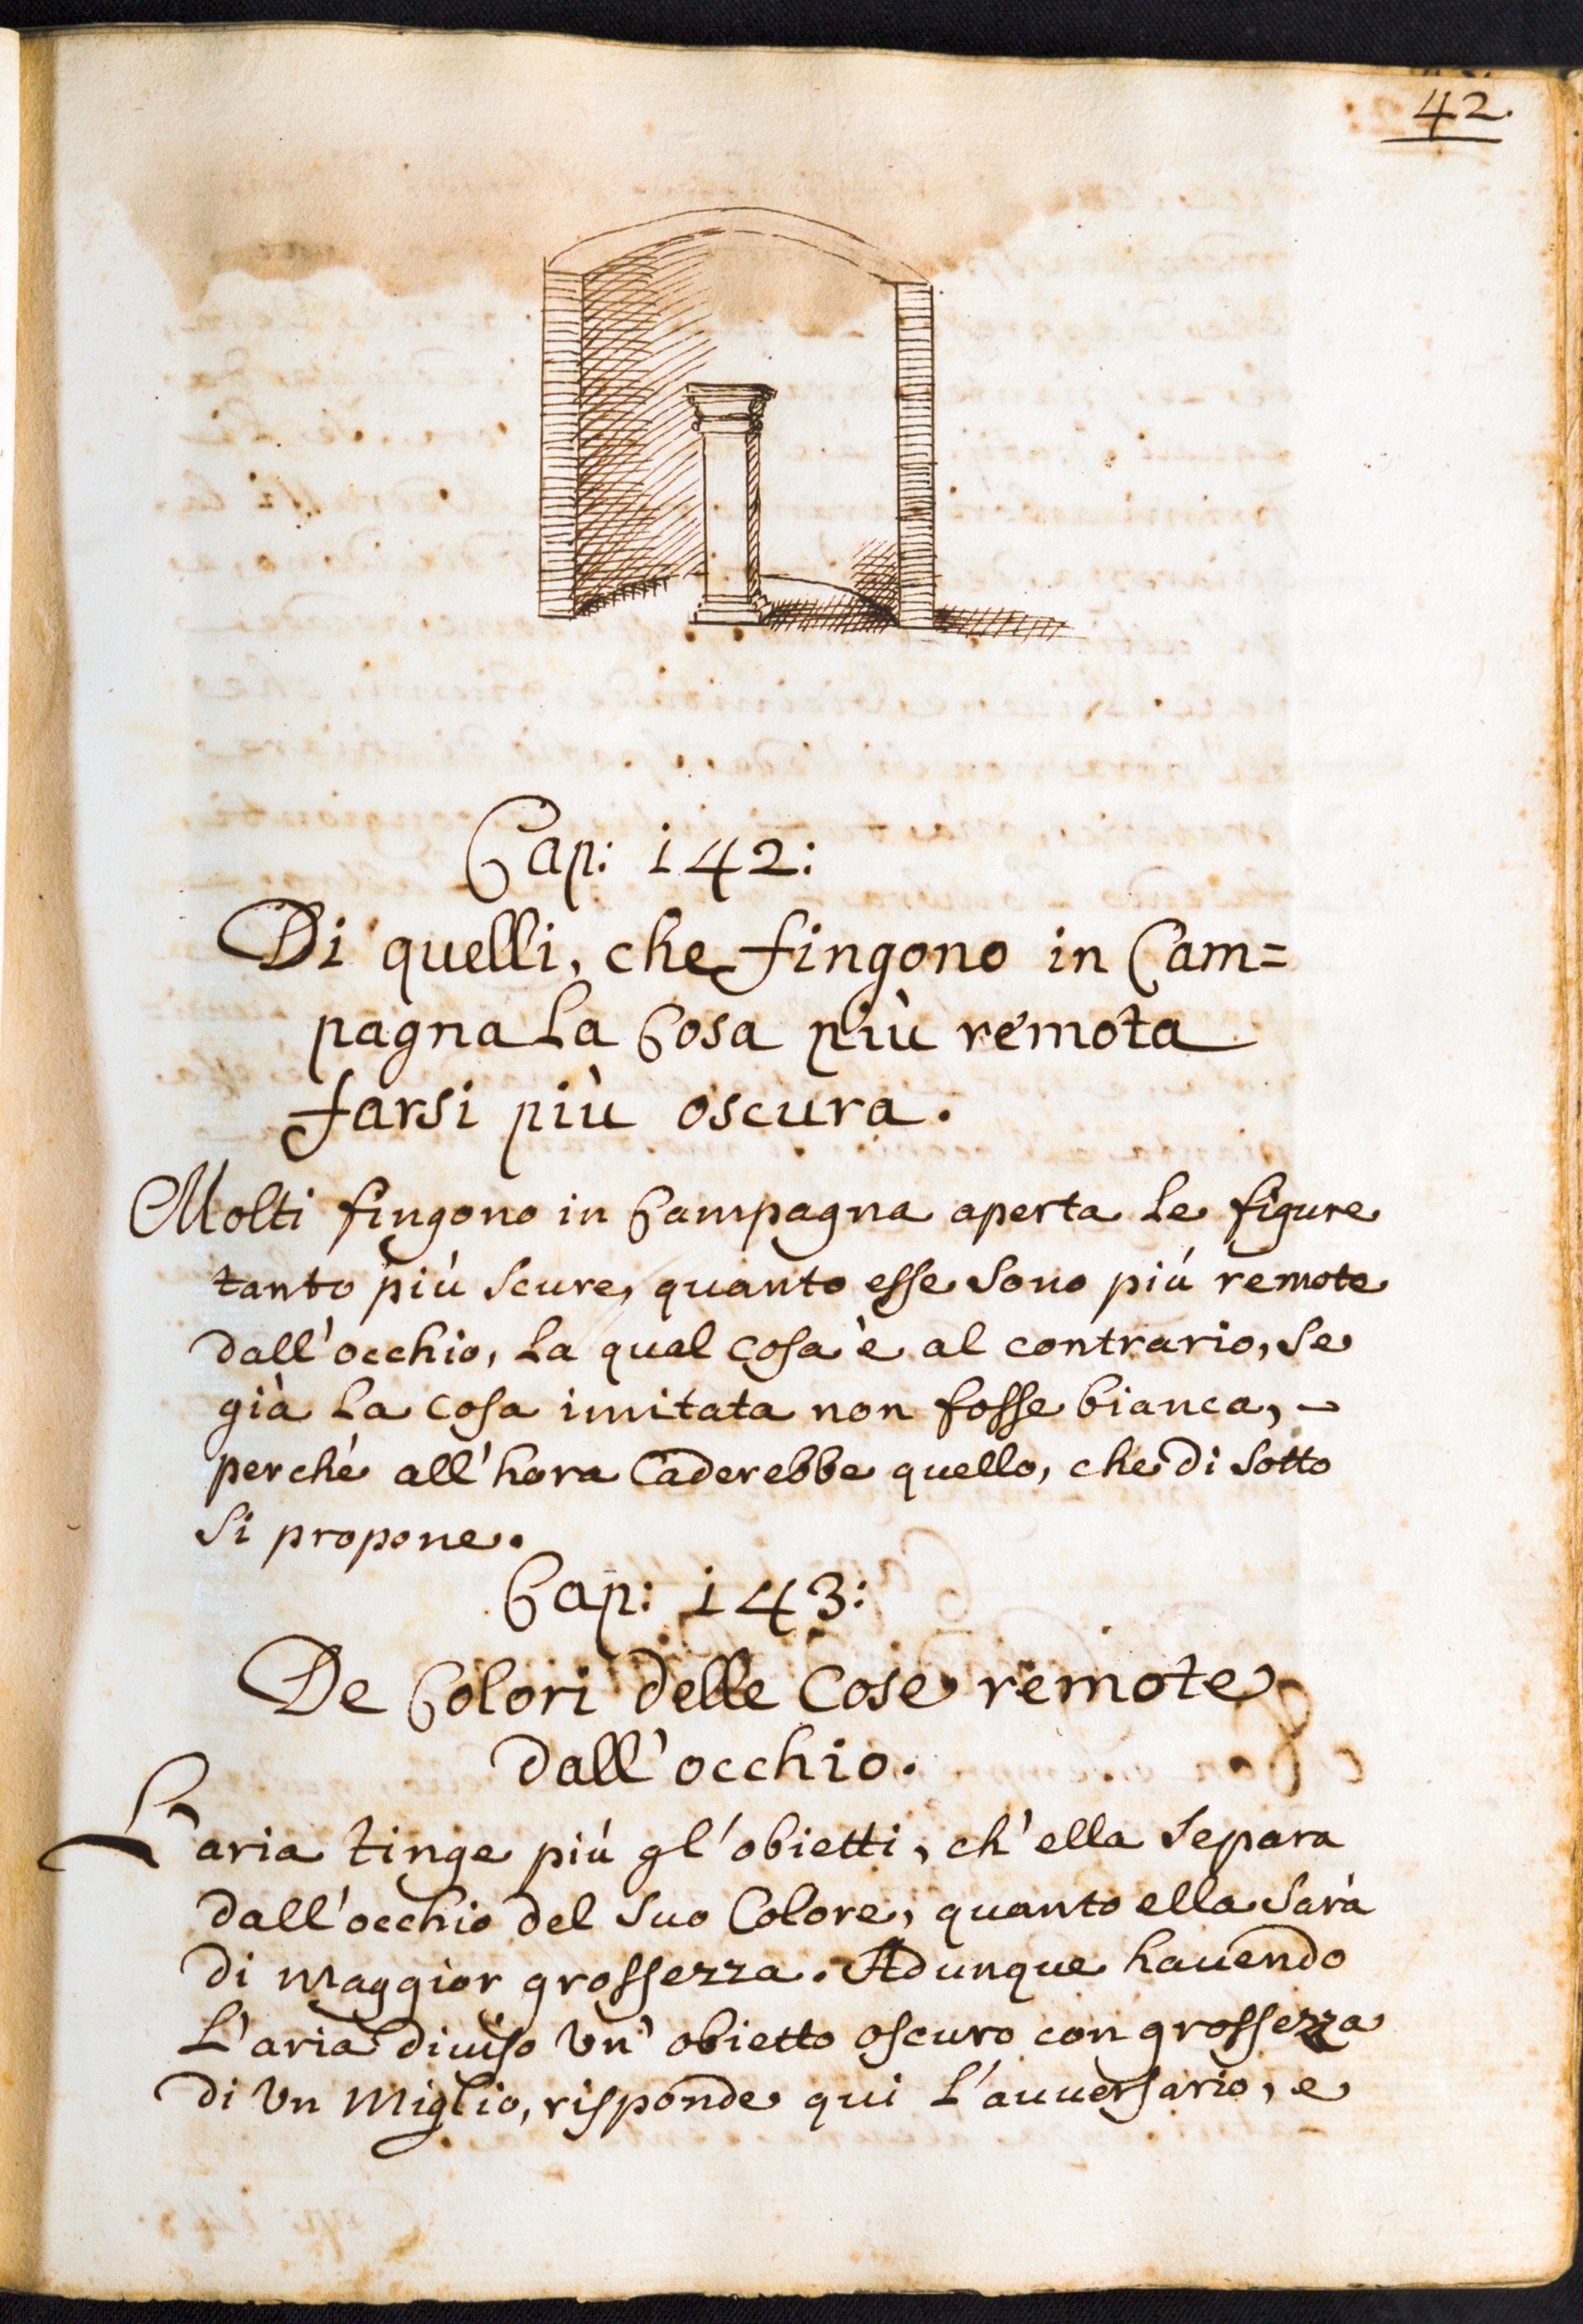 42.
Cap: 142:
Di quelli, che fingono in Cam=
pagna la Cosa più remota
farsi più oscura.
Molti fingono in Campagna aperta le figure
tanto più scure, quanto esse sono più remote
dall'occhio, la qual cosa è al contrario, se
già la cosa imitata non fosse bianca, -
perché all'hora Caderebbe quello, che di sotto
si propone.
Cap: 143:
De Colori delle Cose remote
dall'occhio.
L'aria tinge più gl'obietti, ch'ella separa
dall'occhio del suo Colore, quanto ella sarà
di maggior grossezza. Adunque hauendo
L'aria diuiso Vn' obietto oscuro con grossezza
di Vn Miglio, risponde qui l'auuersario, e